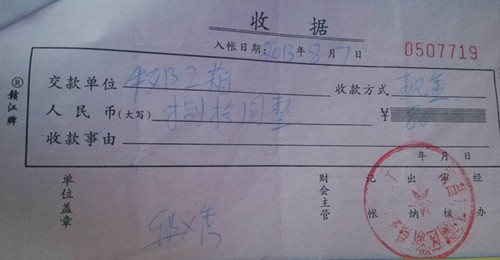 收据
入帐日期:2013年8月7日
0507719
®赣江牌
交款单位
收款方式 现金
人民币(大写) 捌拾圆整 ¥ 80
收款事由
年 月 日
单位盖章
财会主管
记帐
出纳
审核
经办